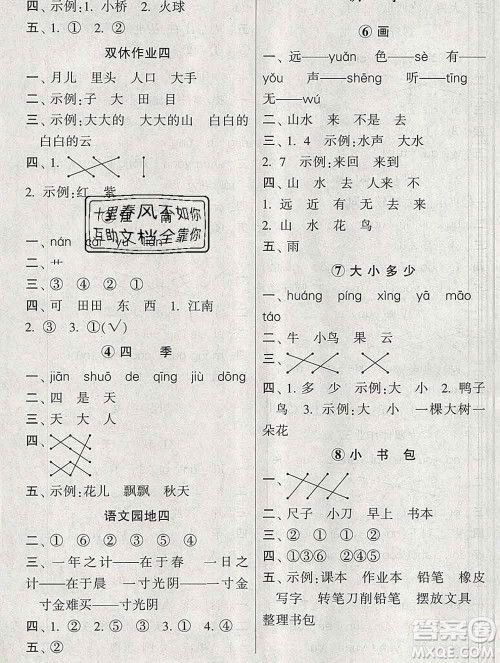 四、示例:1. 小桥 2. 火球
五、1. ① ② 2. ①
双休作业四
一、月儿 里头 人口 大手
二、示例:子 大 田 目
三、示例:大大的 大大的山 白白的
白白的云
四、1.
2. 示例:红 紫
③ 江南
十里春风不如你
互助文档全靠你
一、nán
二、艹
三、① ④ ② ③
四、可 田田 东 西 1. 江南
2. ③ 3. ①(√)
④ 四 季
一、jiān shuō de qīng jiù dōng
二、四 是 天
三、天 大 人
四、
五、示例:花儿 飘飘 秋天
语文园地四
二、② ① ① ②
三、一年之计——在于春 一日之
计——在于晨 一寸光阴——一寸金
寸金难买——寸光阴
四、1. ① 2. ⑤ 3. ④ 4. ②
五、②
⑥ 画
一、远——yuǎn 色——sè 有——
yǒu 声——shēng 听——tīng
无——wú
二、山水 来 不是 去
三、1. 4 示例:水声 大水
2. 7 示例:来回 来到
四、1. 山 水 去 人来 不
2. 远 近 有 无 去 来
3. 山水 花 鸟
五、雨
⑦ 大 小 多 少
一、huáng píng xìng yā māo
táo
二、牛 小鸟 果子 云
三、
四、1. 多 少 示例:大 小 2. 鸭子
鸟 3. 示例:大 小 一棵大树 一
朵花
⑧ 小 书 包
一、
二、尺子 小刀 早上 书本
三、① ① ① ②
四、①③⑥ ②④⑤
五、示例:课本 作业本 铅笔 橡皮
写字 转笔刀削铅笔 摆放文具
整理书包
答案圈
MXQE.COM